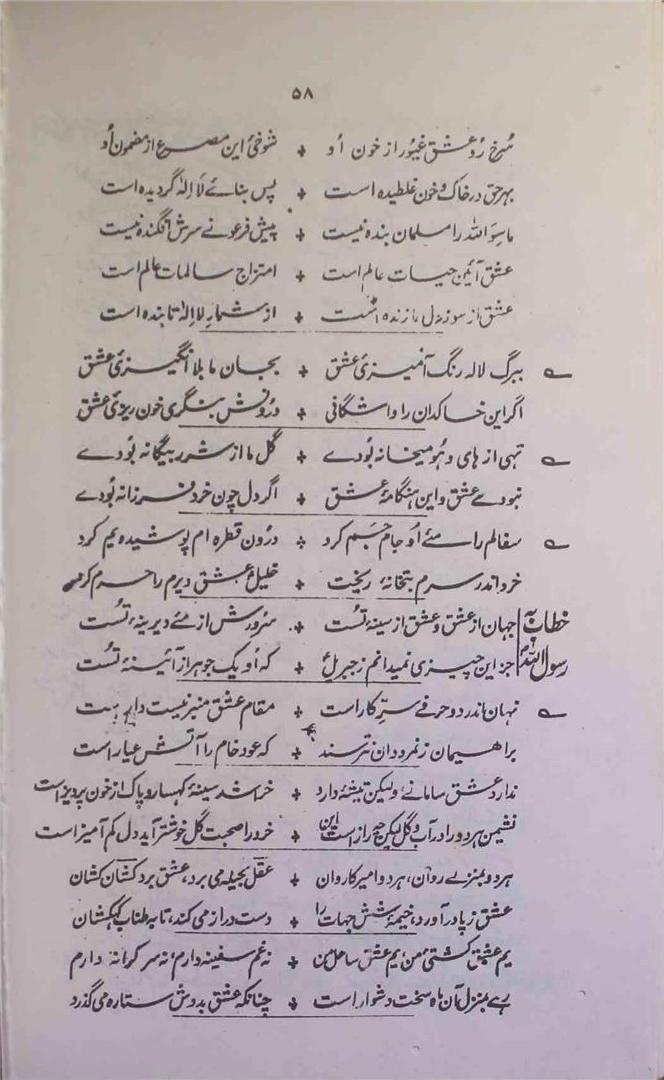 ۵۸
سُرخ رُو عشقِ غیور از خونِ اُو + شوخیٔ این مصرع از مضمونِ اُو
بہرِ حق در خاک و خون غلطیدہ است + پس بنائے لَا اِلٰہ گردیدہ است
ماسِوَا اللہ را مسلمان بندہ نیست + پیشِ فرعونے سرش افگندہ نیست
عشق آئینِ حیاتِ عالم است + امتزاجِ سالماتِ عالم است
عشق از سوزِ دلِ ما زندہ است + از شرارِ لا اِلٰہ تابندہ است
ببرگِ لالہ رنگ آمیزیٔ عشق + بجانِ ما بلا انگیزیٔ عشق
اگر این خاکدان را واشگافی + درونش بنگری خون ریزیٔ عشق
تہی از ہای و ہو میخانہ بُودے + گلِ ما از شرر بیگانہ بُودے
نبودے عشق و این ہنگامۂ عشق + اگر دل چون خرد فرزانہ بُودے
سفالم را مئے اُو جامِ جَم کرد + درُونِ قطرہ ام پوشیدہ یم کرد
خرد اندر سرم بتخانۂ ریخت + خلیلِ عشق دیرم را حرم کرد
خطاب بہ رسول اللہؐ
جہان از عشق و عشق از سینۂ تُست + سرُورش از مئے دیرینۂ تُست
جز این چیزی نمیدانم ز جبریلؑ + کہ اُو یک جوہر از آئینۂ تُست
نہان اندر دو حرفے سرِّ کار است + مقامِ عشق منبر نیست دار است
براہیمان ز نمرودان نترسند + کہ عودِ خام را آتش عیار است
ندارد عشق سامانے ولیکن تیشۂ دارد + خراشد سینۂ کہسار و پاک از خونِ پرویز است
نشیمن ہر دو را در آب و گل لیکن چہ راز است این + خرد را صحبتِ گل خوشتر آید دل کم آمیز است
ہر دو بمنزلے روان، ہر دو امیرِ کاروان + عقل بحیلہ می برد، عشق برد کشان کشان
عشق ز پا در آورد، خیمۂ شش جہات را + دست دراز می کند، تا بہ طنابِ کہکشان
یمِ عشق کشتیٔ من، یمِ عشق ساحلِ من + نہ غمِ سفینہ دارم، نہ سرِ کرانہ دارم
رہے بمنزلِ آن ماہ سخت دشوار است + چنانکہ عشق بدوشِ ستارہ می گذرد